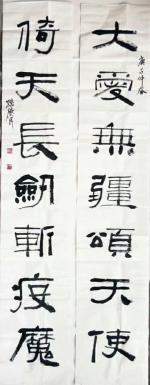 大愛無疆頌天使
庚子仲春
倚天長劍斬疫魔